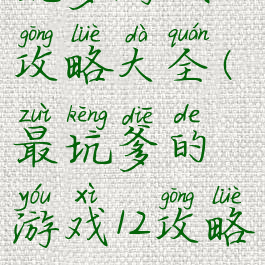 gōng lüè dà quán
攻略大全(
zuì kēng diē de
最坑爹的
yóu xì gōng lüè
游戏12攻略